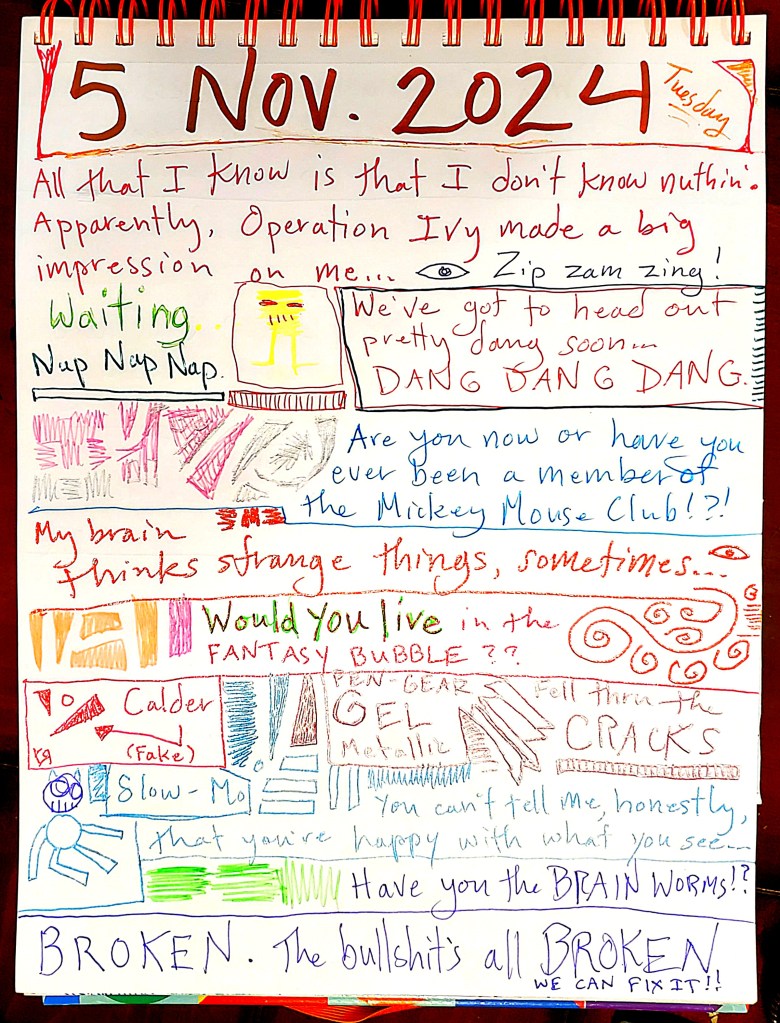 5 Nov. 2024 Tuesday
All that I know is that I don't know nuthin'.
Apparently, Operation Ivy made a big
impression on me... Zip zam zing!
Waiting...
Nap Nap Nap.
We've got to head out
pretty dang soon...
DANG DANG DANG.
Are you now or have you
ever been a member of
the Mickey Mouse Club!?!
My brain
thinks strange things, sometimes...
Would You live in the
FANTASY BUBBLE??
Calder
(Fake)
PEN-GEAR
GEL
Metallic
Fell thru the
CRACKS
Slow-Mo
You can't tell me, honestly,
that you're happy with what you see...
Have you the BRAIN WORMS!?
BROKEN. The bullshit's all BROKEN
WE CAN FIX IT!!